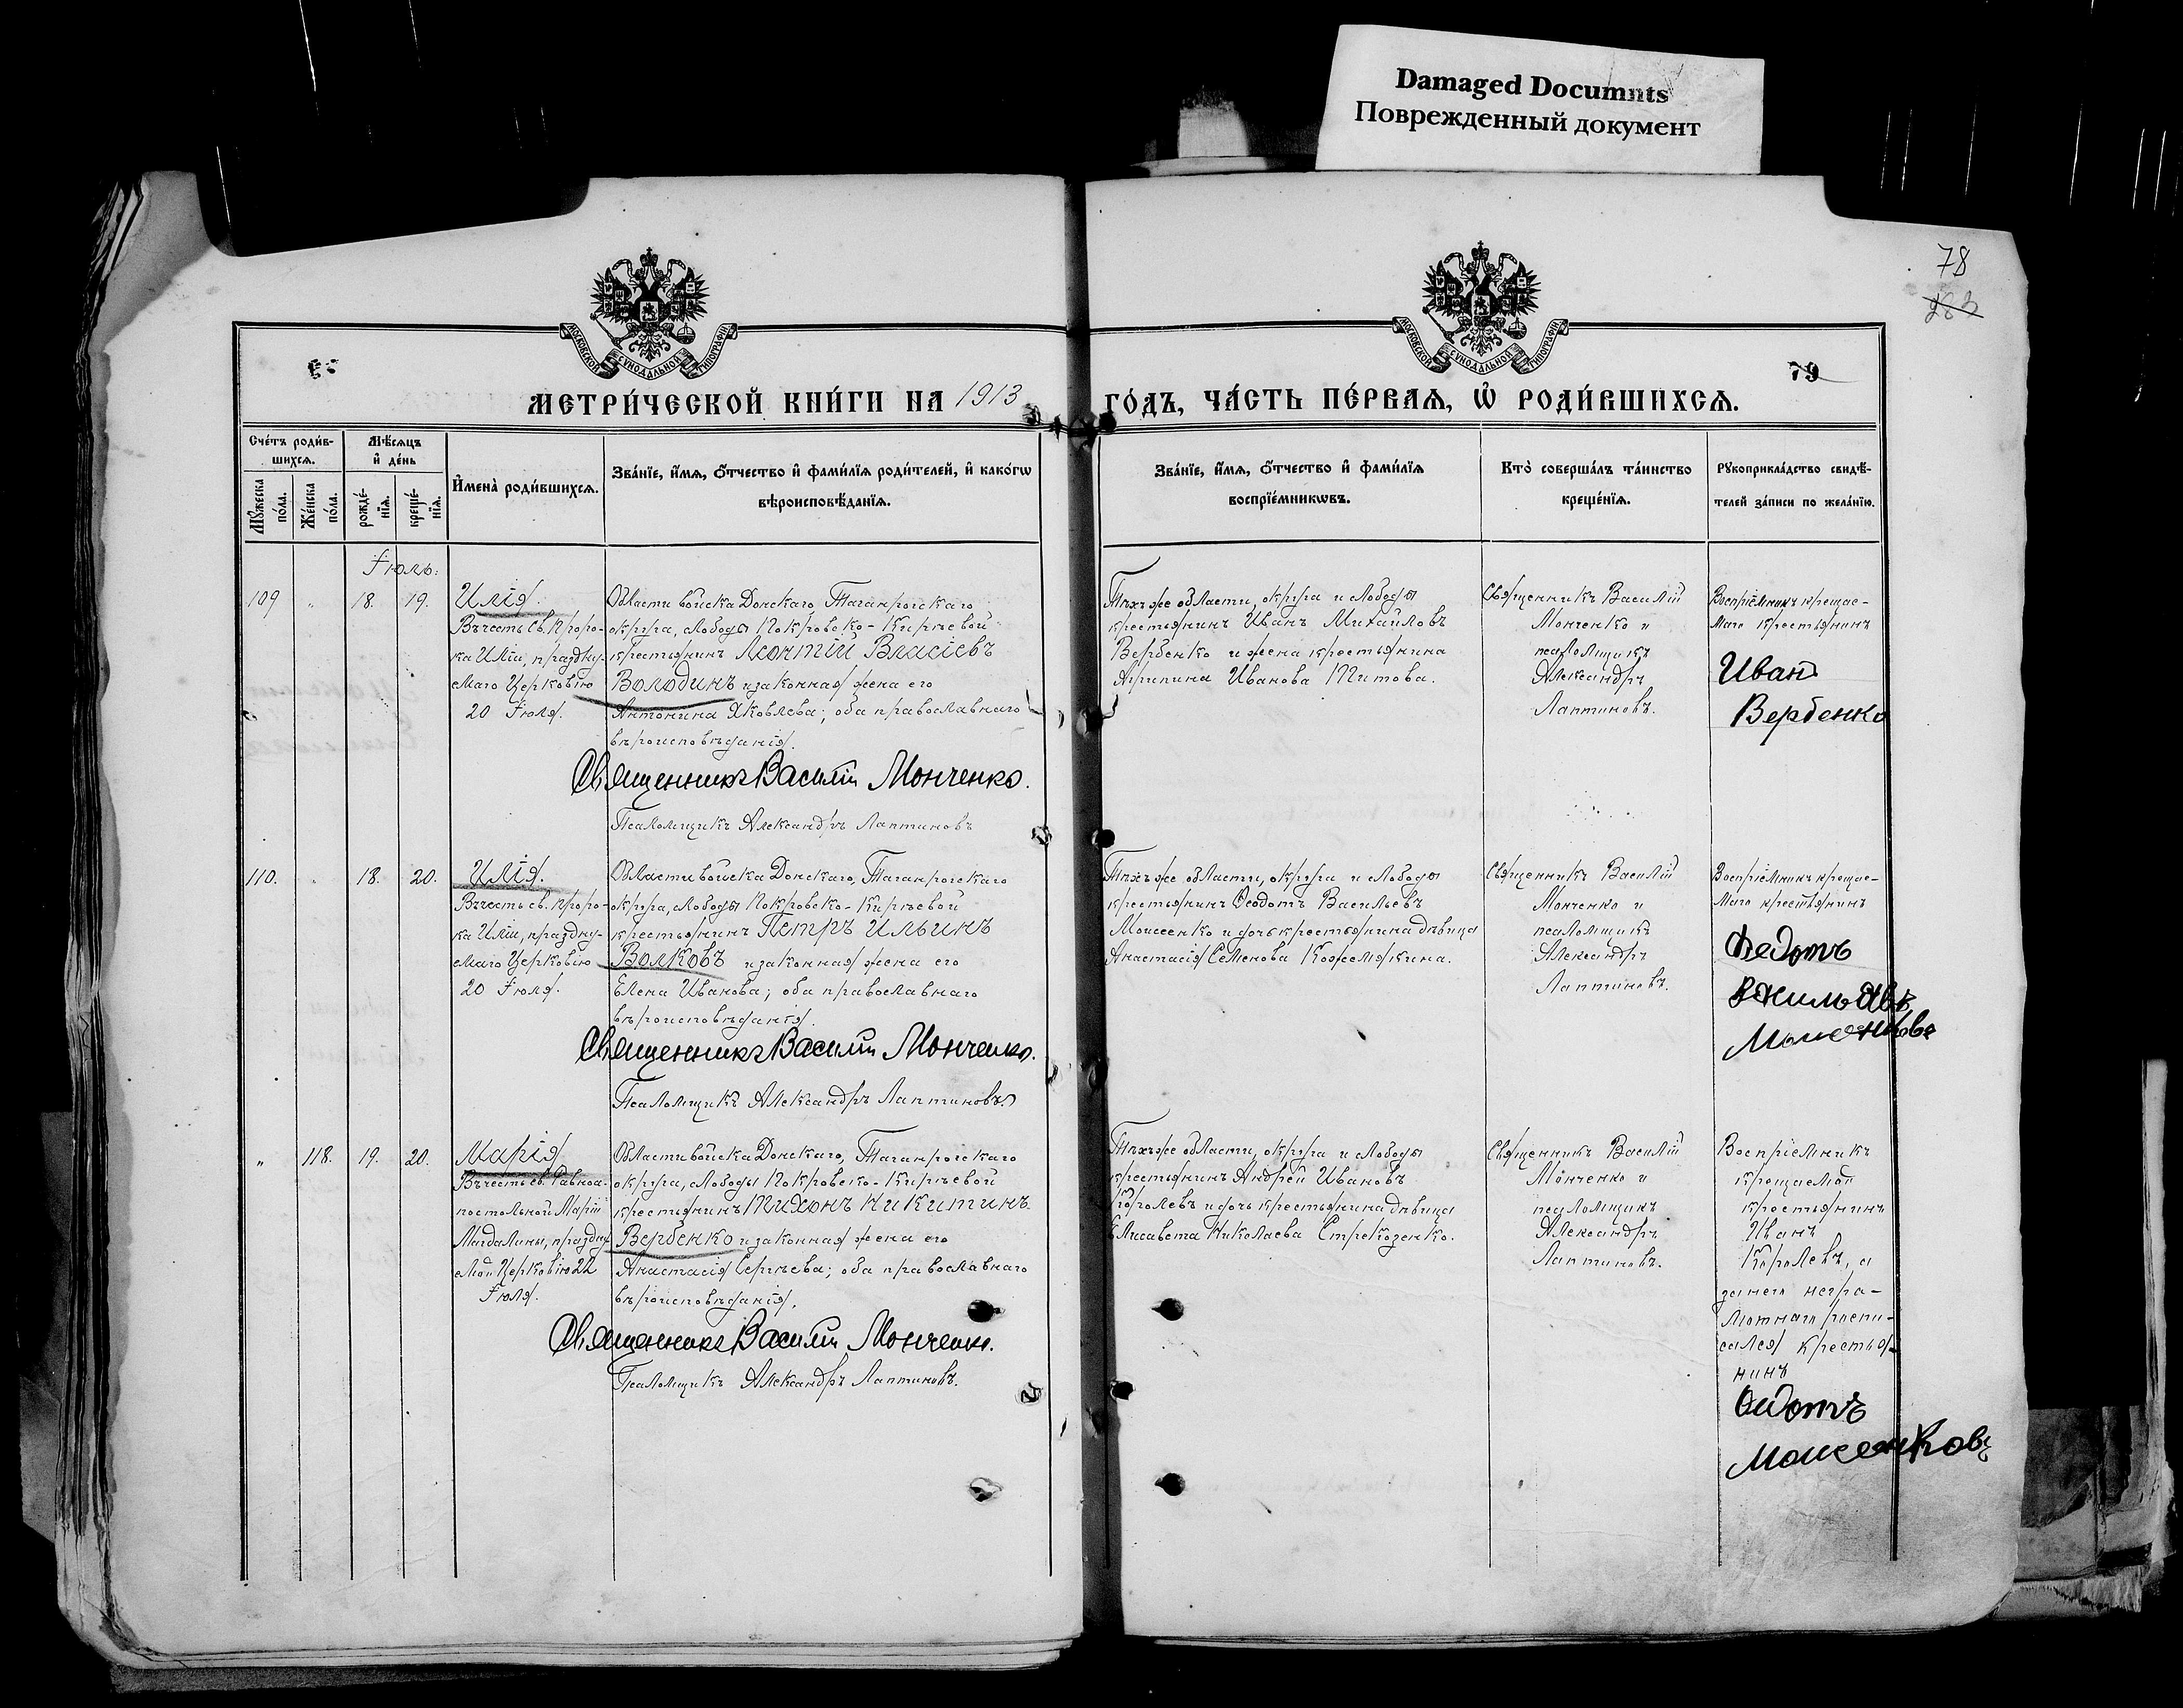 Damaged Documnts
Поврежденный документ
78
МОСКОВСКОЙ СѴНОДАЛЬНОЙ ТИПОГРАФІИ
МОСКОВСКОЙ СѴНОДАЛЬНОЙ ТИПОГРАФІИ
79
МЕТРИ́ЧЕСКОЙ КНИ́ГИ НА 1913
ГО́ДЪ, ЧА́СТЬ ПЕ́РВАЯ, Ѡ҆ РОДИ́ВШИХСЯ.
Сче́тъ роди́в-
шихся.
Мѣ́сяцъ
и҆ де́нь
Мꙋ́жеска
по́ла.
Же́нска
по́ла.
рожде́-
нїя.
креще́-
нїя.
И҆мена̀ роди́вшихся.
Зва́нїе, и҆́мя, ѻ҆́тчество и҆ фами́лїя роди́телей, и҆ како́гѡ
вѣроисповѣ́данїя.
Зва́нїе, и҆́мя, ѻ҆́тчество и҆ фами́лїя
воспрїе́мникѡвъ.
Кто̀ соверша́лъ та́инство
креще́нїя.
Рꙋкоприкла́дство свидѣ́-
телей за́писи по жела́нїю.
Іюль:
109 " 18. 19. Илія.
Въ честь св. Проро-
ка Иліи, празднy-
емаго Церковію
20 Іюля.
Области войска Донскаго, Таганрогскаго
округа, слободы Покровско-Киреевой
крестьянинъ Леонтій Власіевъ
Володинъ и законная жена его
Антонина Яковлева; оба православнаго
вѣроисповѣданія.
Священникъ Василій Монченко.
Псаломщикъ Александръ Лаптиновъ
Тѣхъ же области, округа и слободы
крестьянинъ Иванъ Михайловъ
Вербенко и жена крестьянина
Агрипина Иванова Титова.
Священникъ Василій
Монченко и
псаломщикъ
Александръ
Лаптиновъ.
Воспріемникъ крещае-
маго крестьянинъ
Иван
Вербенко
110. " 18. 20. Илія.
Въ честь св. Проро-
ка Иліи, праздну-
емаго Церковію
20 Іюля.
Области войска Донскаго, Таганрогскаго
округа, слободы Покровско-Киреевой
крестьянинъ Петръ Ильинъ
Волковъ и законная жена его
Елена Иванова; оба православнаго
вѣроисповѣданія.
Священникъ Василій Монченко.
Псаломщикъ Александръ Лаптиновъ.
Тѣхъ же области, округа и слободы
крестьянинъ Ѳеодотъ Васильевъ
Моисеенко и дочь крестьянина дѣвица
Анастасія Семенова Кожемякина.
Священникъ Василій
Монченко и
псаломщикъ
Александръ
Лаптиновъ.
Воспріемникъ крещае-
маго крестьянинъ
Федотъ
" 118. 19. 20. Марія
Въ честь св. Равноа-
постольной Маріи
Магдалины, праздну-
емой Церковію 22
Іюля.
Области войска Донскаго, Таганрогскаго
округа, слободы Покровско-Киреевой
крестьянинъ Тихонъ Никитинъ
Вербенко и законная жена его
Анастасія Сергѣева; оба православнаго
вѣроисповѣданія.
Священникъ Василій Монченко.
Псаломщикъ Александръ Лаптиновъ.
Тѣхъ же области, округа и слободы
крестьянинъ Андрей Ивановъ
Королевъ и дочь крестьянина дѣвица
Елисавета Николаева Стрекозенко.
Священникъ Василій
Монченко и
псаломщикъ
Александръ
Лаптиновъ.
Воспріемникъ
крещаемой
крестьянинъ
Иванъ
Королевъ, а
за него негра-
мотнаго роспи-
сался крестья-
нинъ
Федотъ